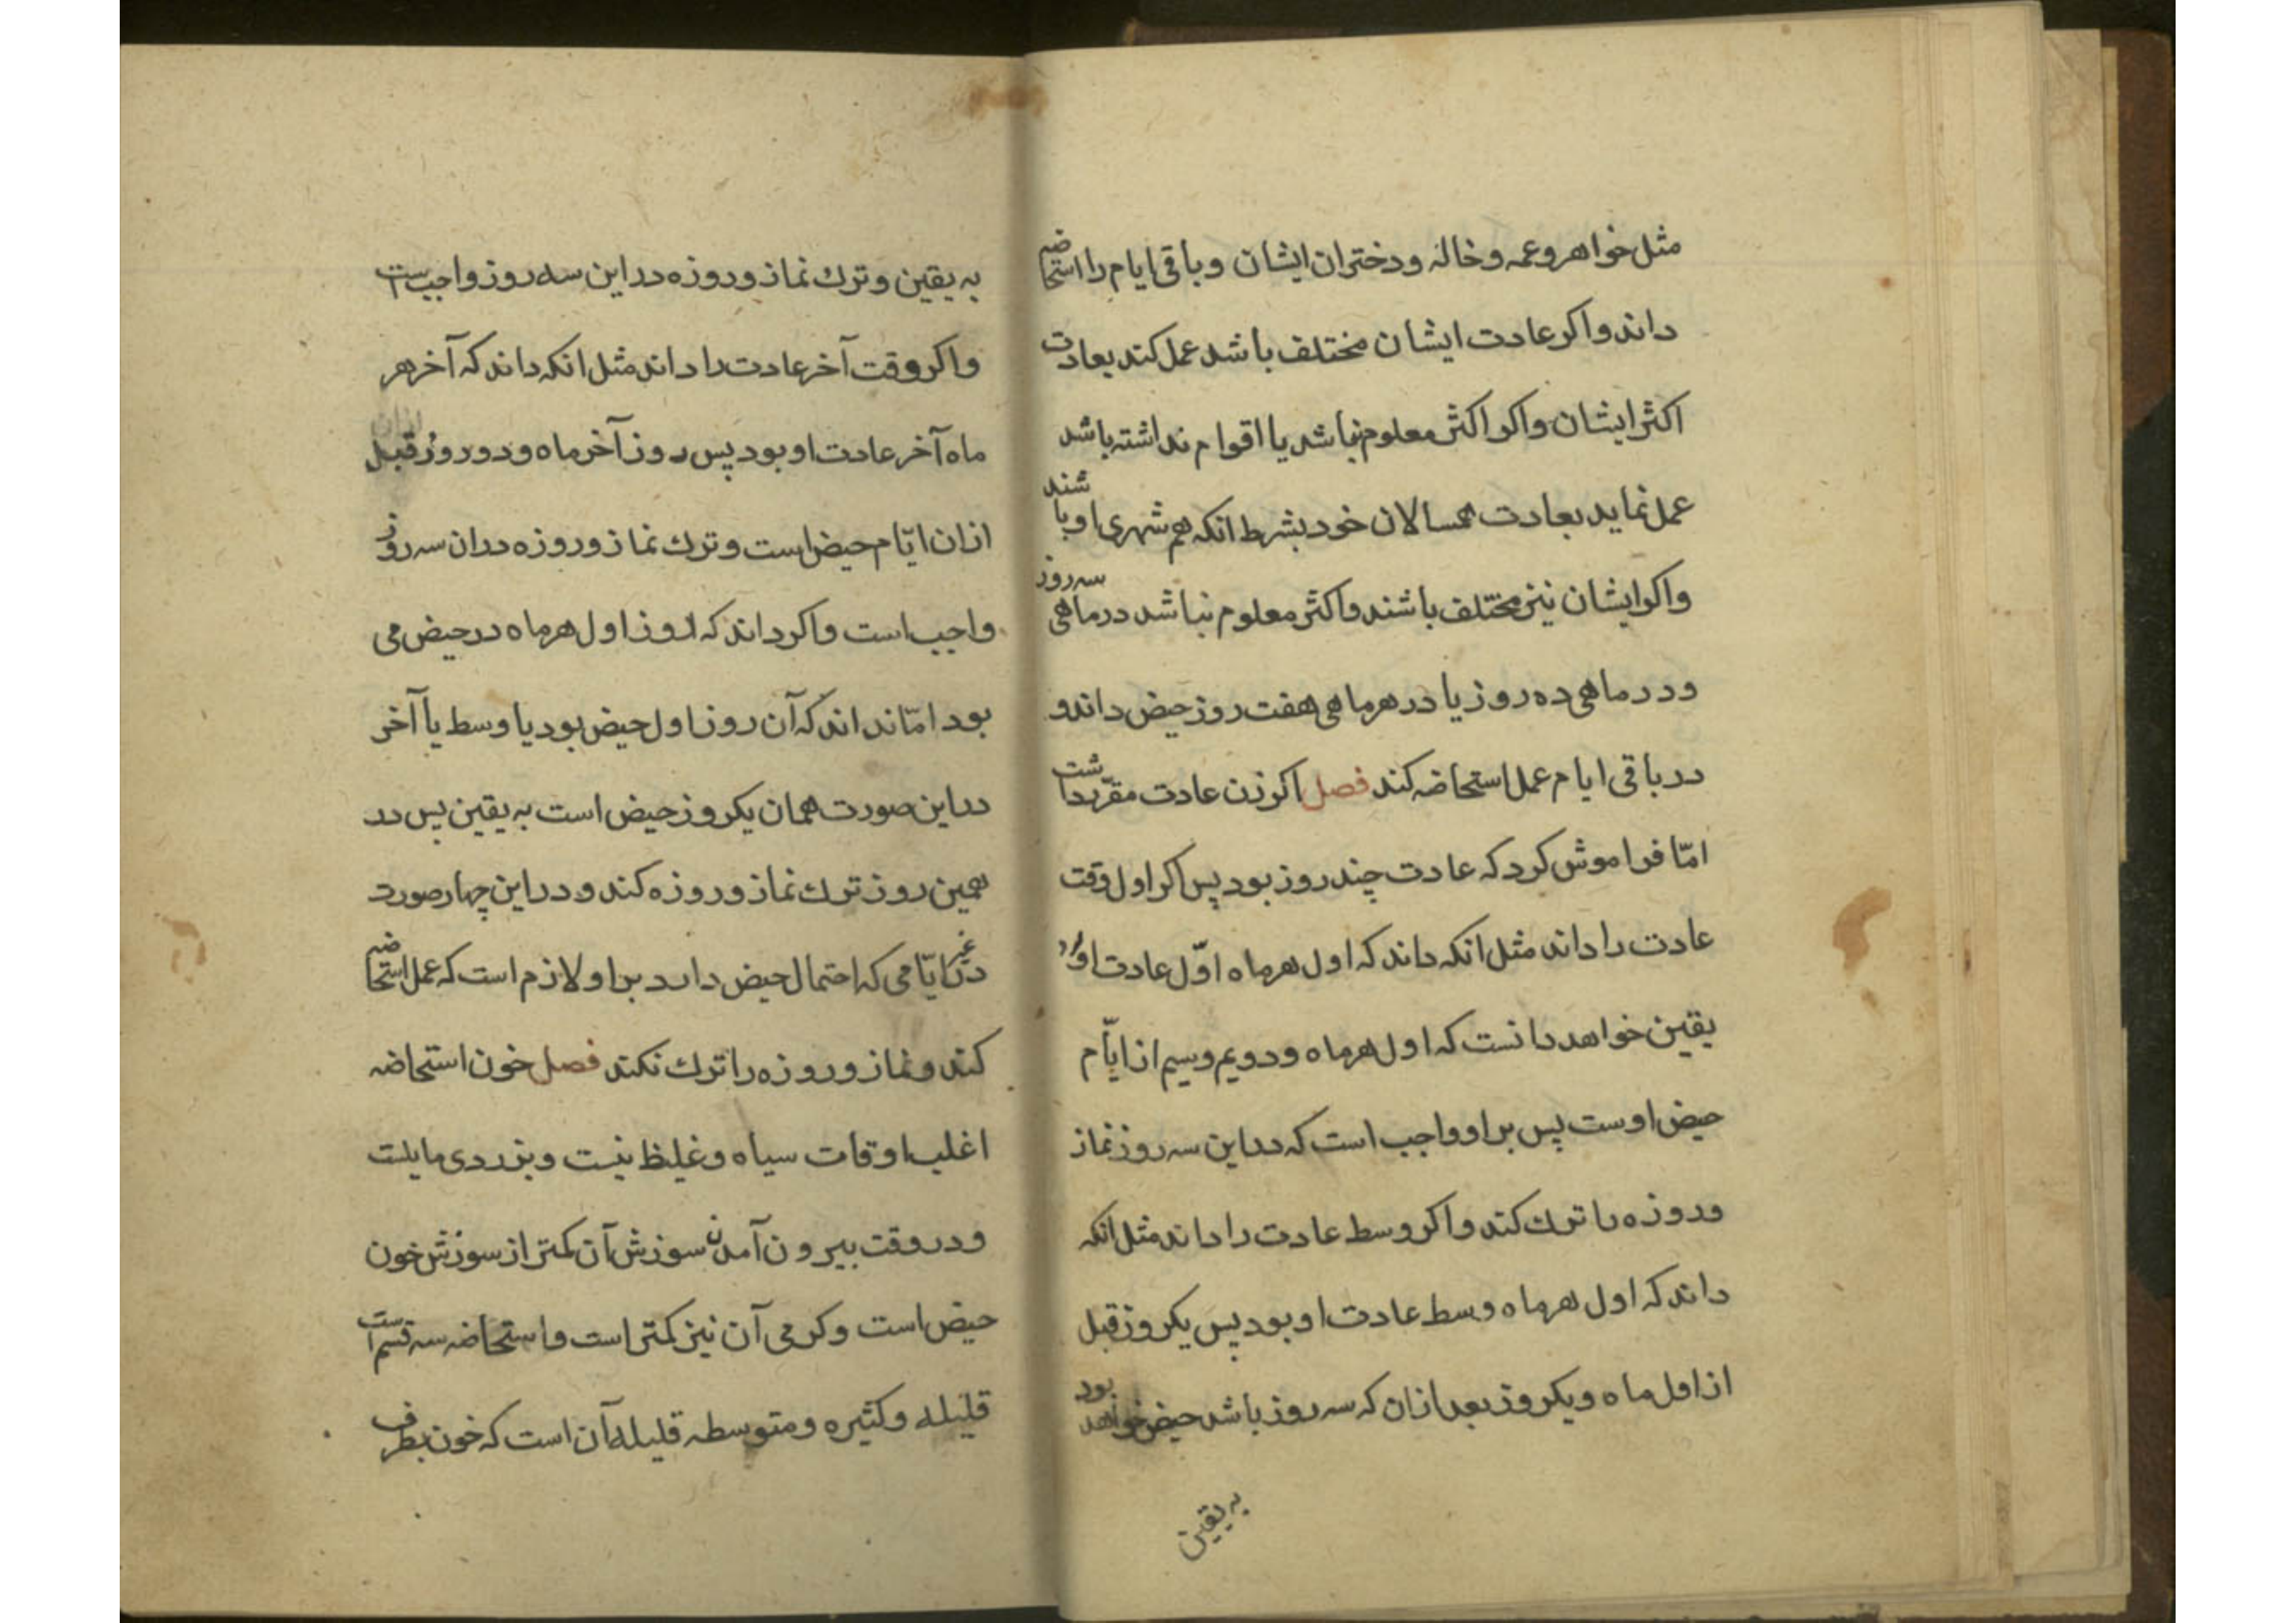 مثل خواهر و عمه و خاله و دختران ایشان و باقی ایام را استحاضه
داند و اکر عادت ایشان مختلف باشد عمل کند بعادت
اکثر ایشان و اکر اکثر معلوم نباشد یا اقوام نداشته باشد
عمل نماید بعادت همسالان خود بشرط انکه هم شهری او باشند
و اکر ایشان نیز مختلف باشند و اکثر معلوم نباشد در ماهی سه روز
و در ماهی ده روز یا در هر ماهی هفت روز حیض داند و
در باقی ایام عمل استحاضه کند فصل اکر زن عادت مقرّر داشت
امّا فراموش کرد که عادت چند روز بود پس اکر اول وقت
عادت را داند مثل انکه داند که اول هر ماه اوّل عادت او
یقین خواهد دانست که اول هر ماه و دویم و سیم از ایّام
حیض اوست پس بر او واجب است که در این سه روز نماز
و روزه را ترك کند و اکر وسط عادت را داند مثل انکه
داند که اول هر ماه وسط عادت او بود پس یکروز قبل
از اول ماه و یکروز بعد ازان که سه روز باشد حیض خواهد بود
به یقین
به یقین و ترك نماز و روزه در این سه روز واجب است
و اکر وقت آخر عادت را داند مثل انکه داند که آخر هر
ماه آخر عادت او بود پس روز آخر ماه و دو روز قبل
ازان ایّام حیض است و ترك نماز و روزه دران سه روز
واجب است و اکر داند که روز اول هر ماه در حیض می
بود امّا نداند که آن روز اول حیض بود یا وسط یا آخر
در این صورت همان یکروز حیض است به یقین پس در
همین روز ترك نماز و روزه کند و در این چهار صورت
در غیر ایّامی که احتمال حیض دارد بر او لازم است که عمل استحاضه
کند و نماز و روزه را ترك نکند فصل خون استحاضه
اغلب اوقات سیاه و غلیظ نیست و بزردی مایلست
و در وقت بیرون آمدن سوزش آن کمتر از سوزش خون
حیض است و کرمی آن نیز کمتر است و استحاضه سه قسم است
قلیله و کثیره و متوسطه قلیله آن است که خون بطرف